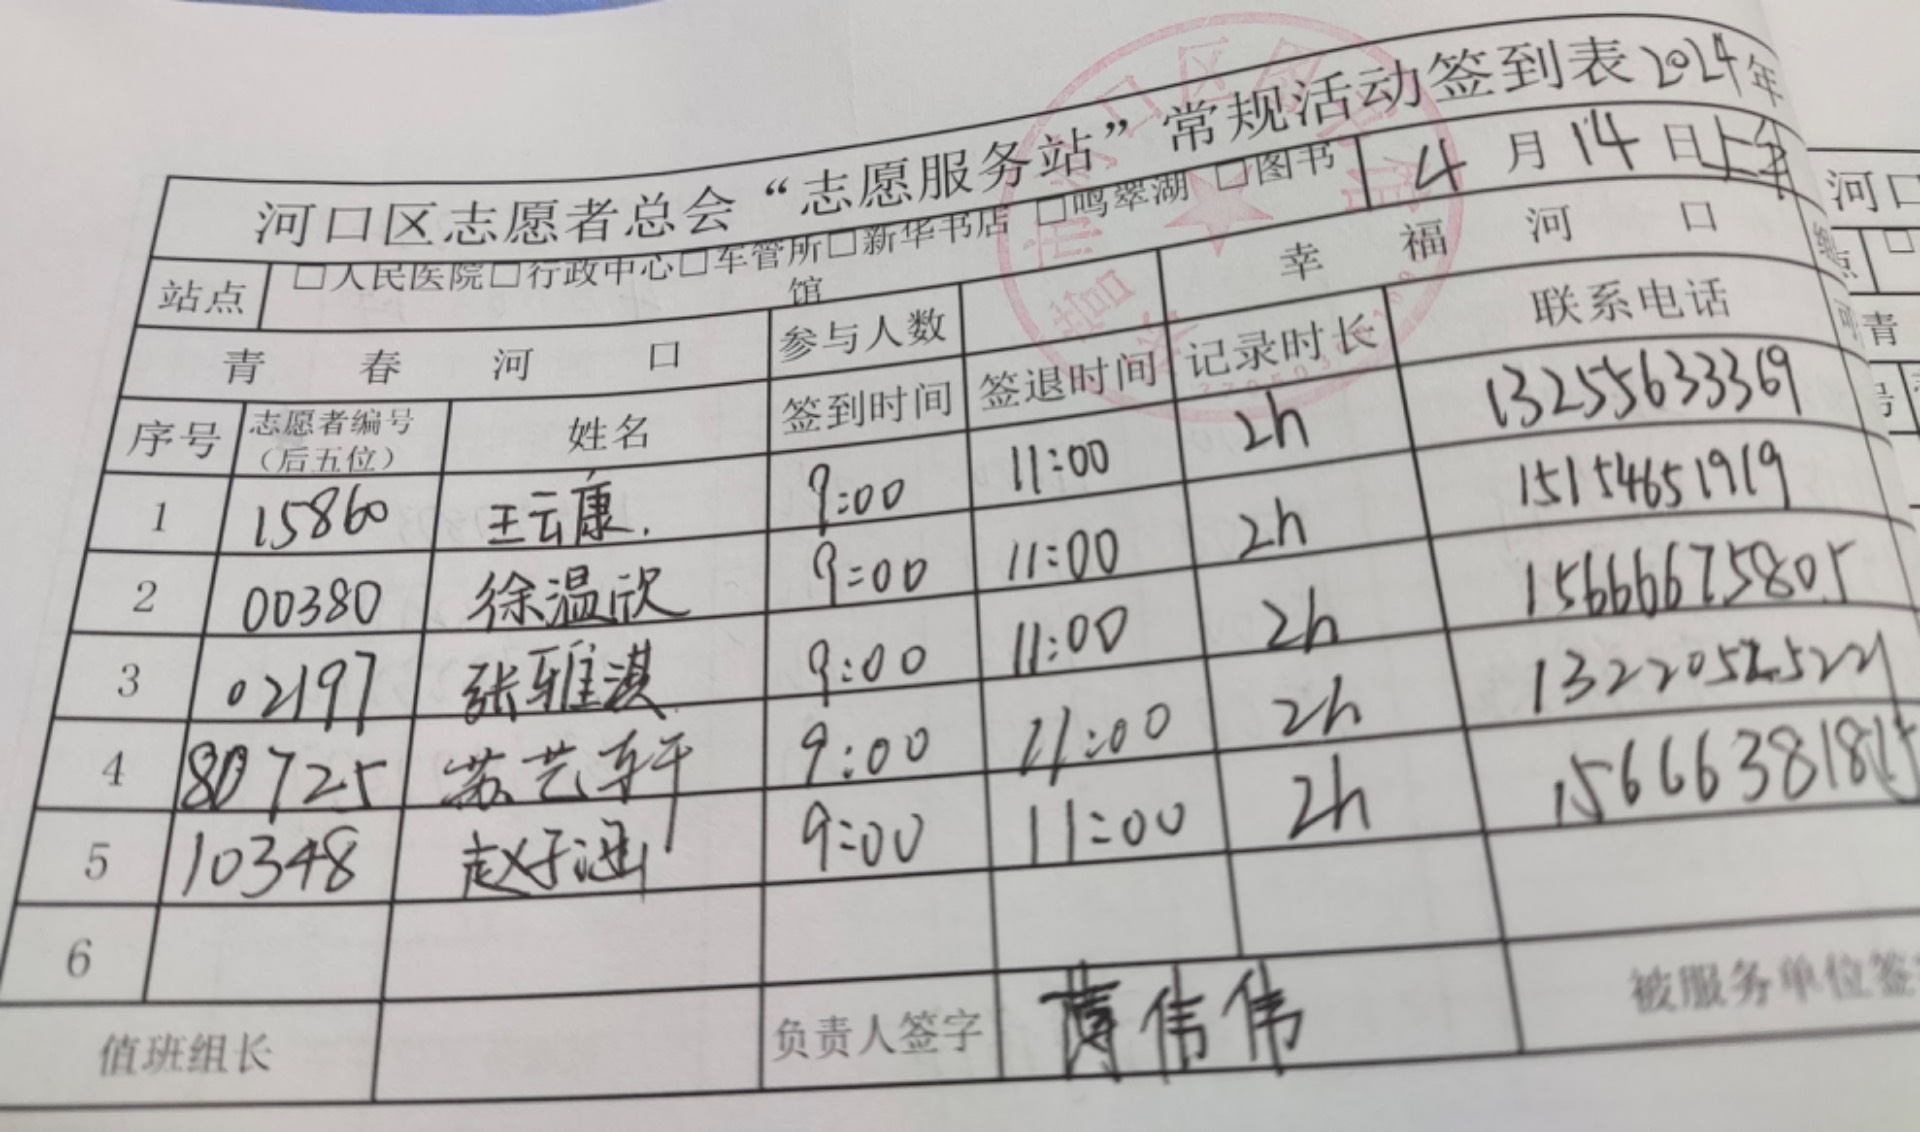 河口区志愿者总会“志愿服务站”常规活动签到表2024年
站点 □人民医院□行政中心□车管所□新华书店 □鸣翠湖 □图书馆 4月14日上午
青春河口 参与人数 幸福河口
序号 志愿者编号（后五位） 姓名 签到时间 签退时间 记录时长 联系电话
1 15860 王云康. 9:00 11:00 2h 13255633369
2 00380 徐温欣 9:00 11:00 2h 15154651919
3 02197 张雅淇 9:00 11:00 2h 15666675805
4 80725 苏艺轩 9:00 11:00 2h
5 10348 赵子涵 9:00 11:00 2h
6
值班组长 负责人签字 薄伟伟 被服务单位签
河口
青